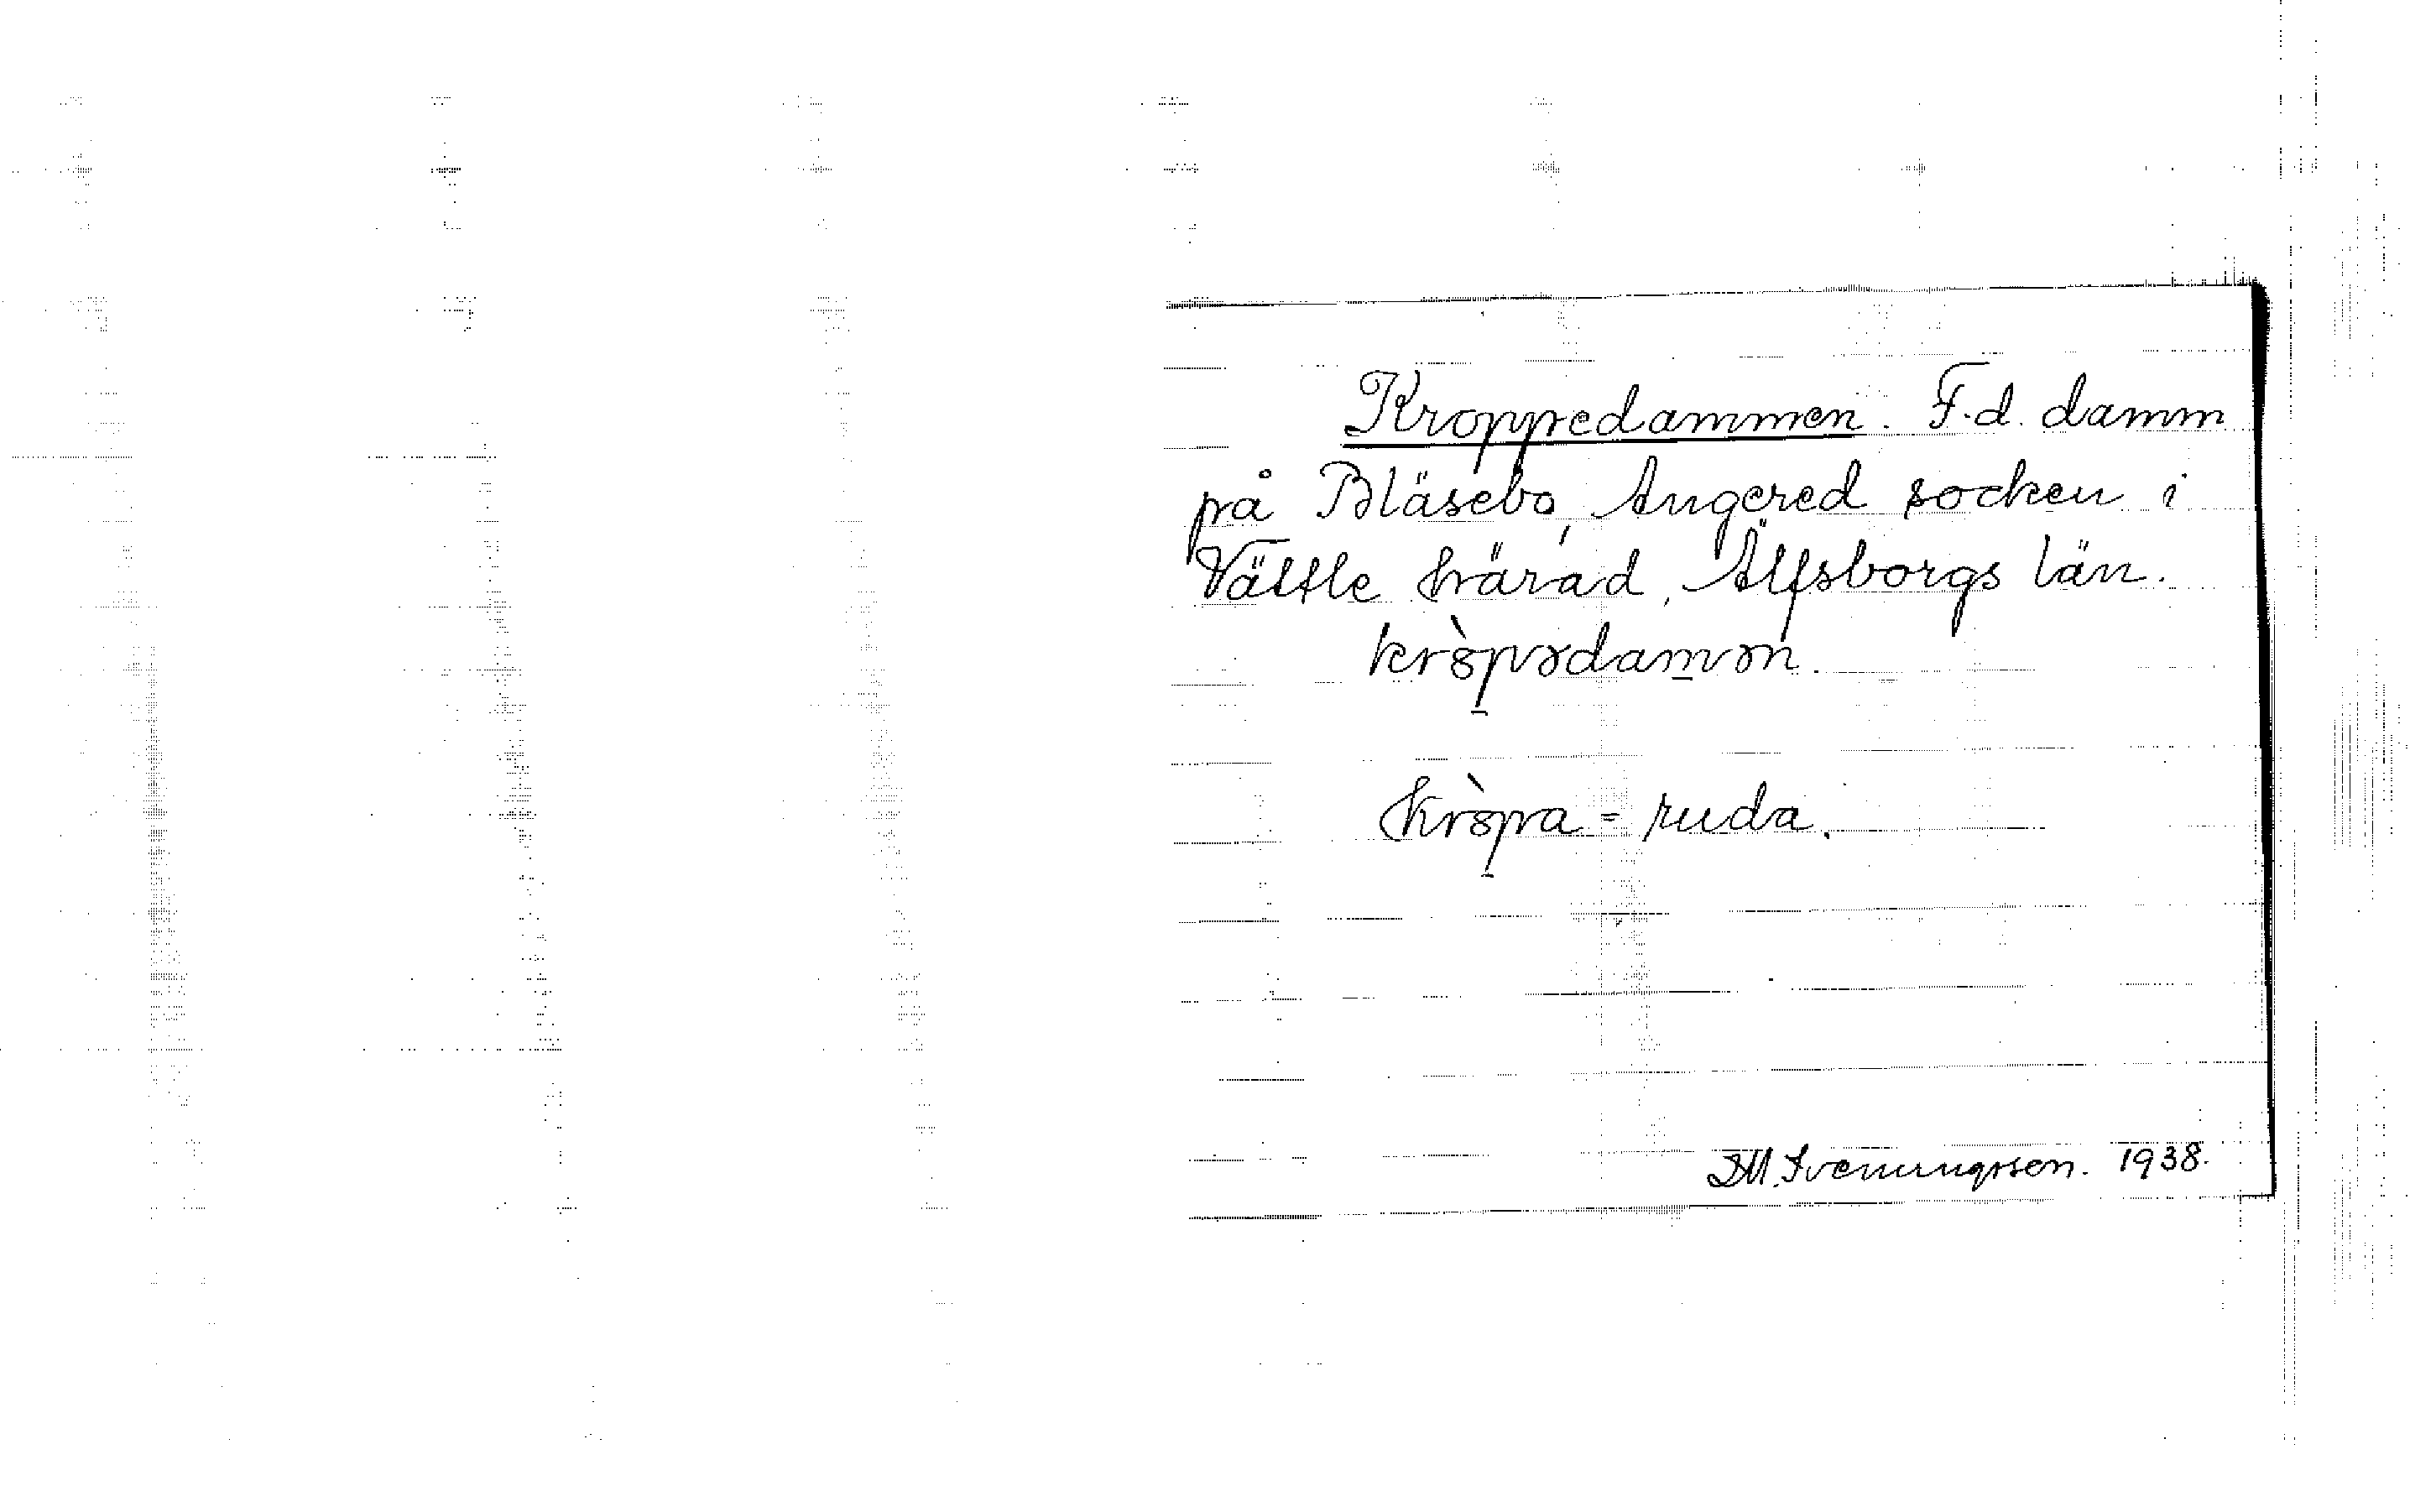 Kroppedammen. F.d. damm
på Bläsebo, Angered socken i
Vättle härad, Älfsborgs län.
kròpədamən.
Kròpa = ruda.
1938.